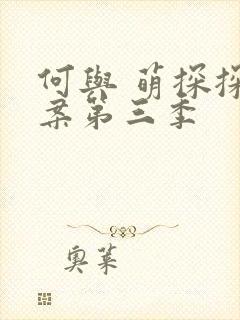 何與 萌探探
案第三季
奧萊